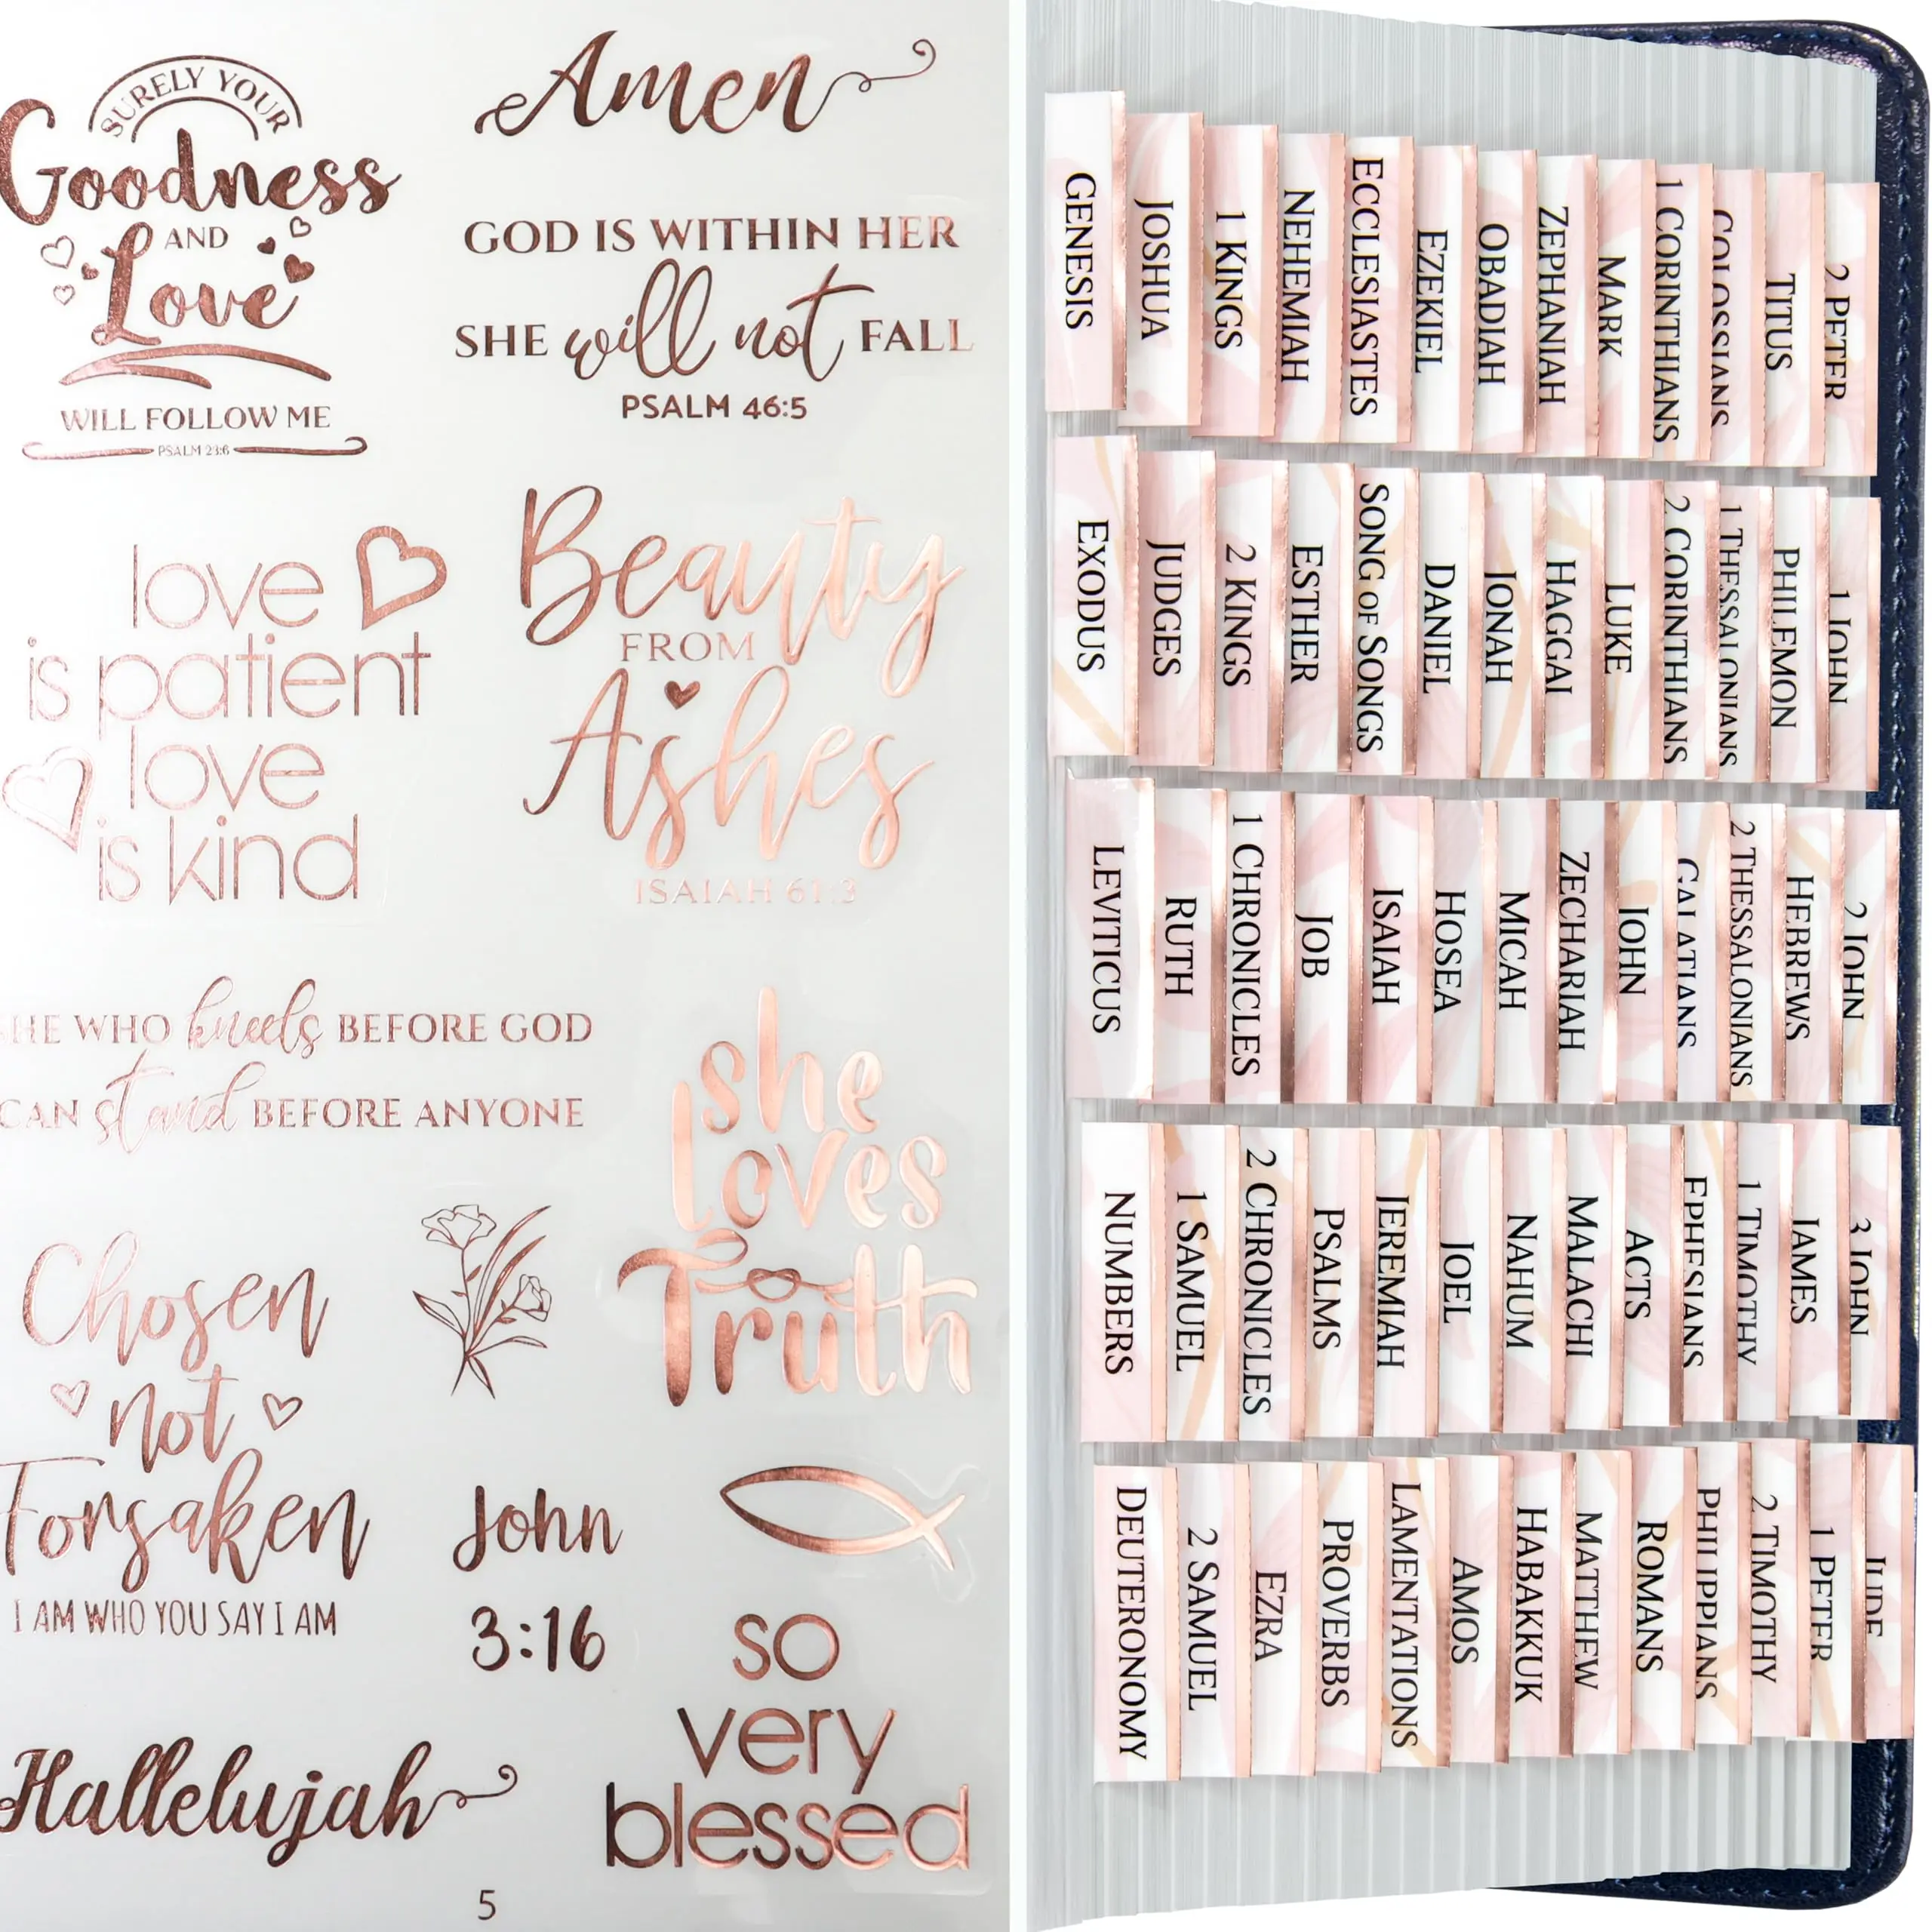 SURELY YOUR
Goodness
AND
Love
WILL FOLLOW ME
PSALM 23:6
Amen
GOD IS WITHIN HER
SHE will not FALL
PSALM 46:5
love
is patient
love
is kind
Beauty
FROM
Ashes
ISAIAH 61:3
SHE WHO kneels BEFORE GOD
CAN stand BEFORE ANYONE
she
loves
Truth
Chosen
not
Forsaken
I AM WHO YOU SAY I AM
John
3:16
so
very
blessed
Hallelujah
5
GENESIS
JOSHUA
1 KINGS
NEHEMIAH
ECCLESIASTES
EZEKIEL
OBADIAH
ZEPHANIAH
MARK
1 CORINTHIANS
COLOSSIANS
TITUS
2 PETER
EXODUS
JUDGES
2 KINGS
ESTHER
SONG OF SONGS
DANIEL
JONAH
HAGGAI
LUKE
2 CORINTHIANS
1 THESSALONIANS
PHILEMON
1 JOHN
LEVITICUS
RUTH
1 CHRONICLES
JOB
ISAIAH
HOSEA
MICAH
ZECHARIAH
JOHN
GALATIANS
2 THESSALONIANS
HEBREWS
2 JOHN
NUMBERS
1 SAMUEL
2 CHRONICLES
PSALMS
JEREMIAH
JOEL
NAHUM
MALACHI
ACTS
EPHESIANS
1 TIMOTHY
JAMES
3 JOHN
DEUTERONOMY
2 SAMUEL
EZRA
PROVERBS
LAMENTATIONS
AMOS
HABAKKUK
MATTHEW
ROMANS
PHILIPPIANS
2 TIMOTHY
1 PETER
JUDE